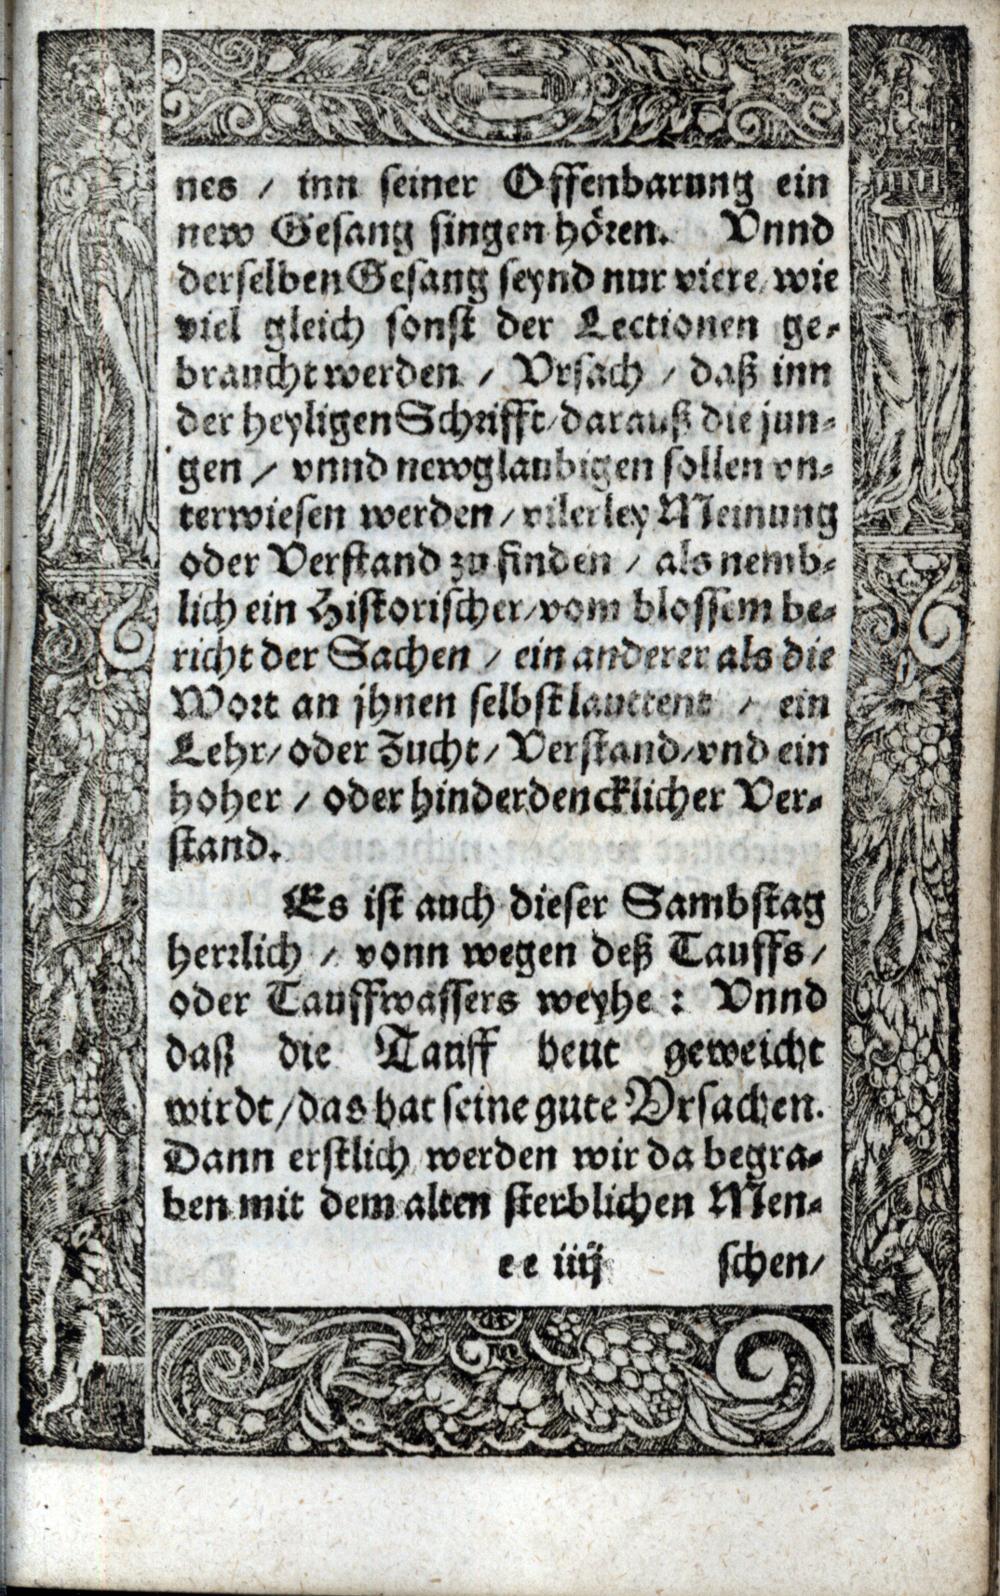 nes / inn seiner Offenbarung ein
new Gesang singen hören. Vnnd
derselben Gesang seynd nur viere / wie
viel gleich sonst der Lectionen ge-
braucht werden / Vrsach / daß inn
der heyligen Schrifft / darauß die jun-
gen / vnnd newglaubigen sollen vn-
terwiesen werden / vilerley Meinung
oder Verstand zu finden / als nemb-
lich ein Historischer / vom blossem be-
richt der Sachen / ein anderer als die
Wort an jhnen selbst lauttent / ein
Lehr / oder Zucht / Verstand / vnd ein
hoher / oder hinderdencklicher Ver-
stand.
Es ist auch dieser Sambstag
herrlich / vonn wegen deß Tauffs /
oder Tauffwassers weyhe : Vnnd
daß die Tauff heut geweicht
wirdt / das hat seine gute Vrsachen.
Dann erstlich werden wir da begra-
ben mit dem alten sterblichen Men-
e e iiij schen /